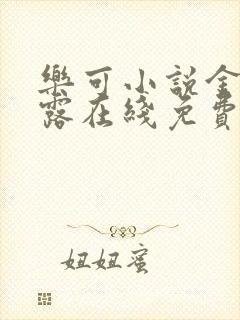 樂可小說金
露在綫免費
妞妞蜜